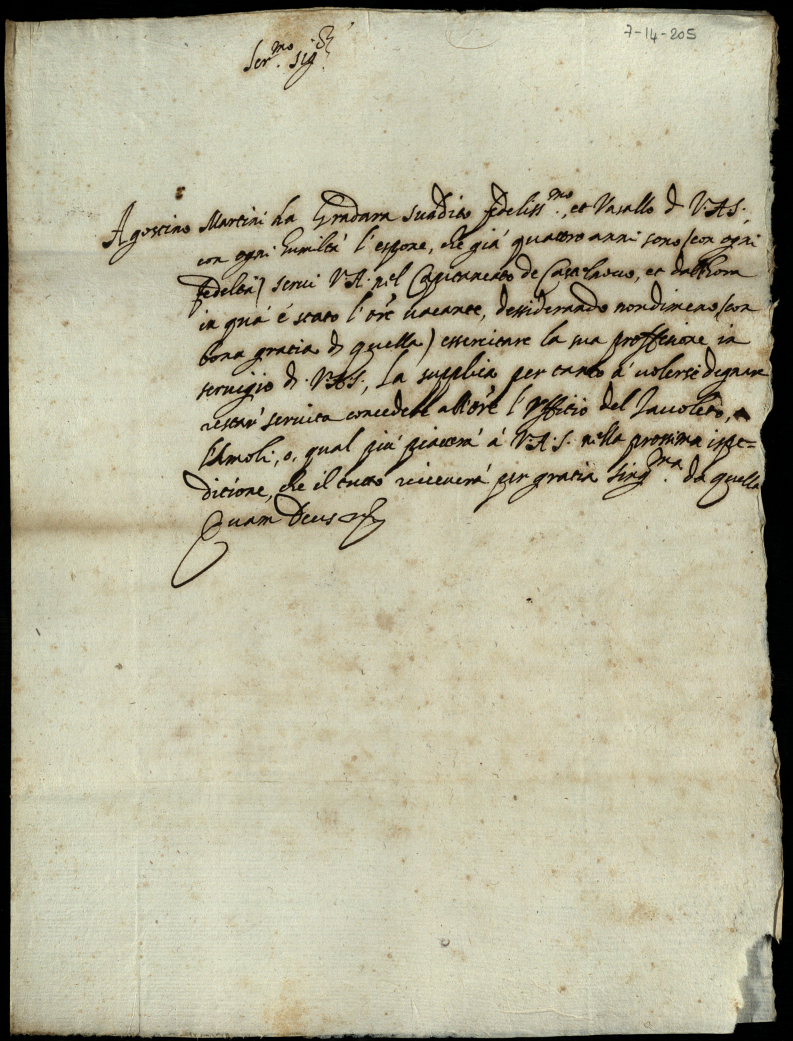 7-14-205
Ser.mo Sig.r
Agostino Martini da Gradara suddito fedeliss.mo, et Vasallo di V.A.S.,
con ogni humiltà l'espone, che già quattro anni sono (con ogni
fedeltà) servì V.A. nel Capitaneato de Casteln, et dall'hora
in quà è stato l'ore vacante, dessiderando nondimeno (con
bona gratia di quella) essercitare la sua proffessione in
servigio di V.A.S., La supplica per tanto à volersi degnare
restar servita concederli all'ore l'Uffitio del Tavoleto,
, o, qual più piacerà à V.A.S. nella prossima ispe-
ditione, che il tutto riceverà per gratia sing.ma da quella
Quam Deus